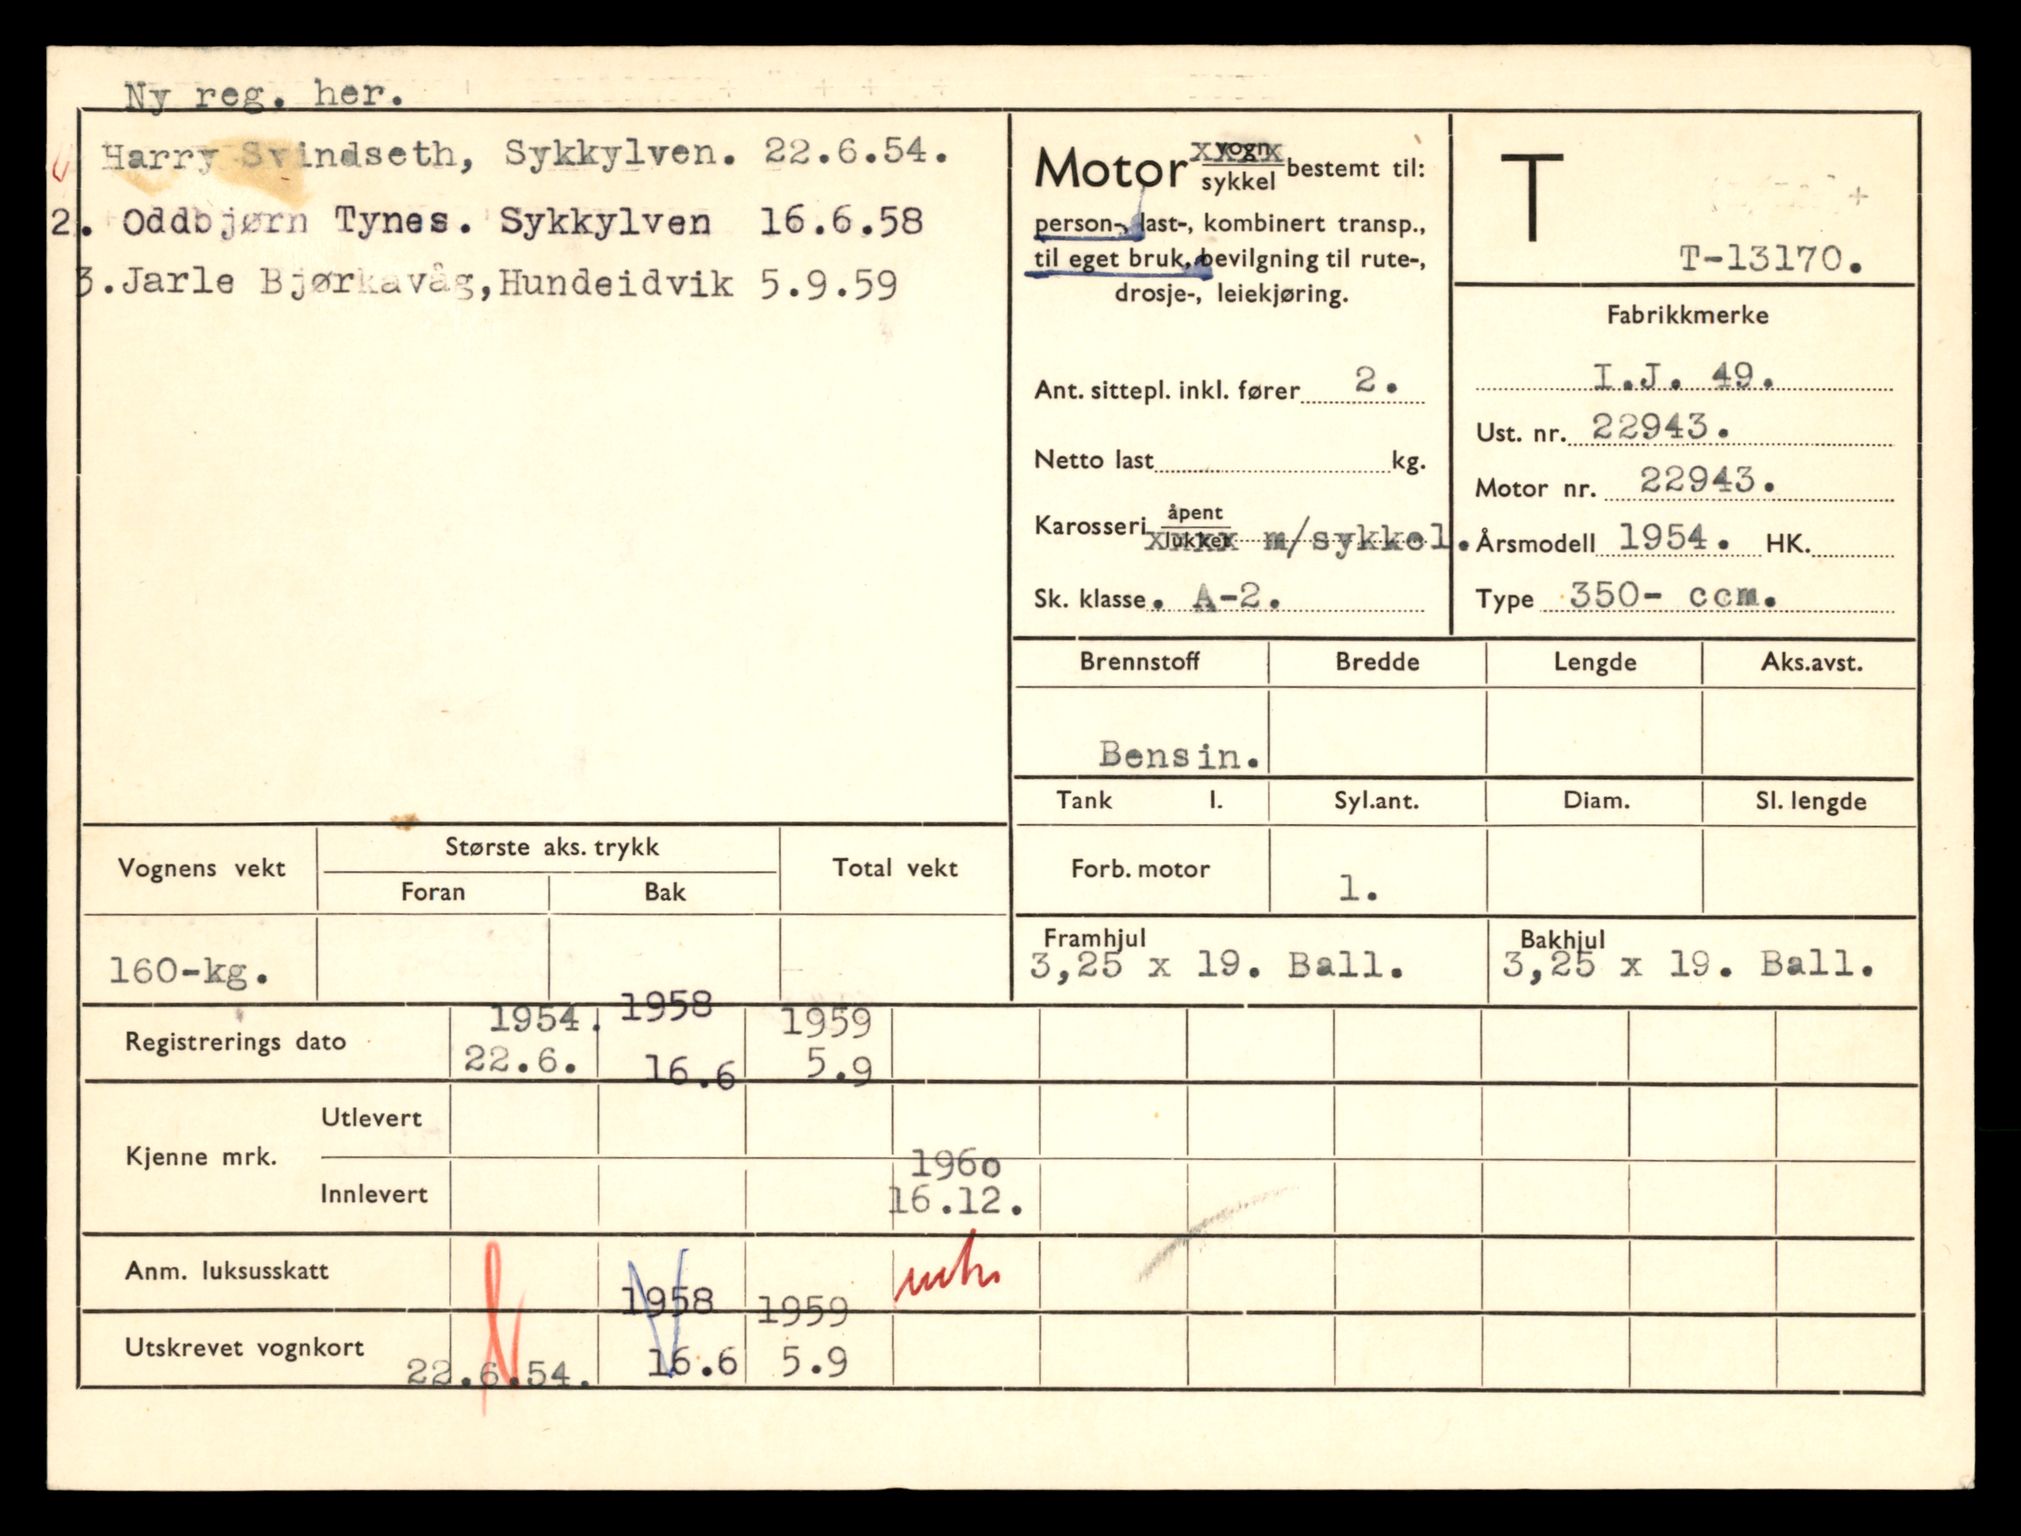 Ny reg. her.
Harry Svindseth, Sykkylven. 22.6.54.
2. Oddbjørn Tynes. Sykkylven 16.6.58
3. Jarle Bjørkavåg, Hundeidvik 5.9.59
Motor vogn/sykkel bestemt til:
person-, last-, kombinert transp.,
til eget bruk, bevilgning til rute-,
drosje-, leiekjøring.
Ant. sittepl. inkl. fører 2.
Netto last kg.
Karosseri åpent/lukket m/sykkel.
Sk. klasse. A-2.
T
T-13170.
Fabrikkmerke
I.J. 49.
Ust. nr. 22943.
Motor nr. 22943.
Årsmodell 1954. HK.
Type 350- ccm.
Brennstoff Bredde Lengde Aks.avst.
Bensin.
Tank l. Syl.ant. Diam. Sl. lengde
Forb. motor 1.
Framhjul Bakhjul
3,25 x 19. Ball. 3,25 x 19. Ball.
Vognens vekt Største aks. trykk Total vekt
Foran Bak
160-kg.
1954. 1958 1959
Registrerings dato 22.6. 16.6 5.9
Utlevert
Kjenne mrk.
1960
Innlevert 16.12.
Anm. luksusskatt
1958 1959
Utskrevet vognkort 22.6.54. 16.6 5.9